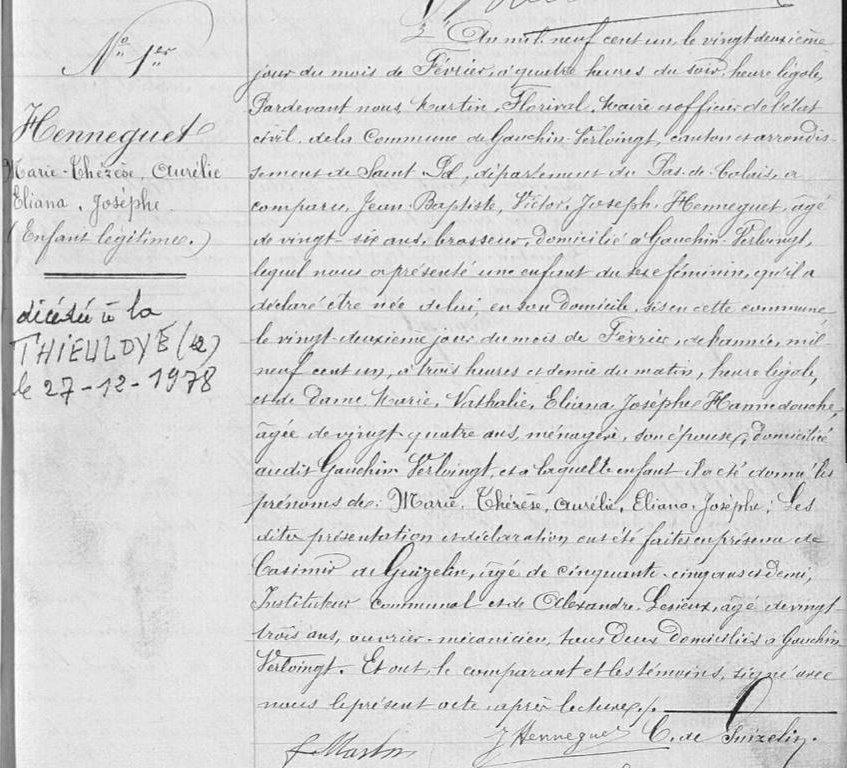 N° 1er
Henneguet
Marie-Thérèse, Aurélie
Eliana, Josèphe
(Enfant légitime.)
décédée à la
THIEULOYE (62)
le 27-12-1978
L'An mil neuf cent un, le vingt deuxième
jour du mois de Février, à quatre heures du soir, heure légale,
Pardevant nous, Martin, Florival, Maire et officier de l'état
civil de la Commune de Gauchin-Verloingt, canton et arrondis-
sement de Saint Pol, département du Pas-de-Calais, a
comparu, Jean-Baptiste, Victor, Joseph, Henneguet, âgé
de vingt-six ans, brasseur, domicilié à Gauchin-Verloingt,
lequel nous a présenté une enfant du sexe féminin, qu'il a
déclaré être née de lui, en son domicile, sis en cette commune,
le vingt-deuxième jour du mois de Février, de l'année, mil-
neuf cent un, à trois heures et demie du matin, heure légale,
et de Dame Marie, Nathalie, Eliana, Josèphe Hannedouche,
âgée de vingt quatre ans, ménagère, son épouse, domiciliée
audit Gauchin Verloingt, et à laquelle enfant il a été donné les
prénoms de: Marie, Thérèse, Aurélie, Eliana, Josèphe; Les
dites présentation et déclaration ont été faites en présence de
Casimir de Guizelin, âgé de cinquante-cinq ans et demi,
Instituteur communal et de Alexandre Lesieux, âgé de vingt-
trois ans, ouvrier-mécanicien, tous deux domiciliés à Gauchin
Verloingt. Et ont, le comparant et les témoins, signé avec
nous le présent acte, après lecture./.
f. Martin J Henneguet C. de Guizelin.